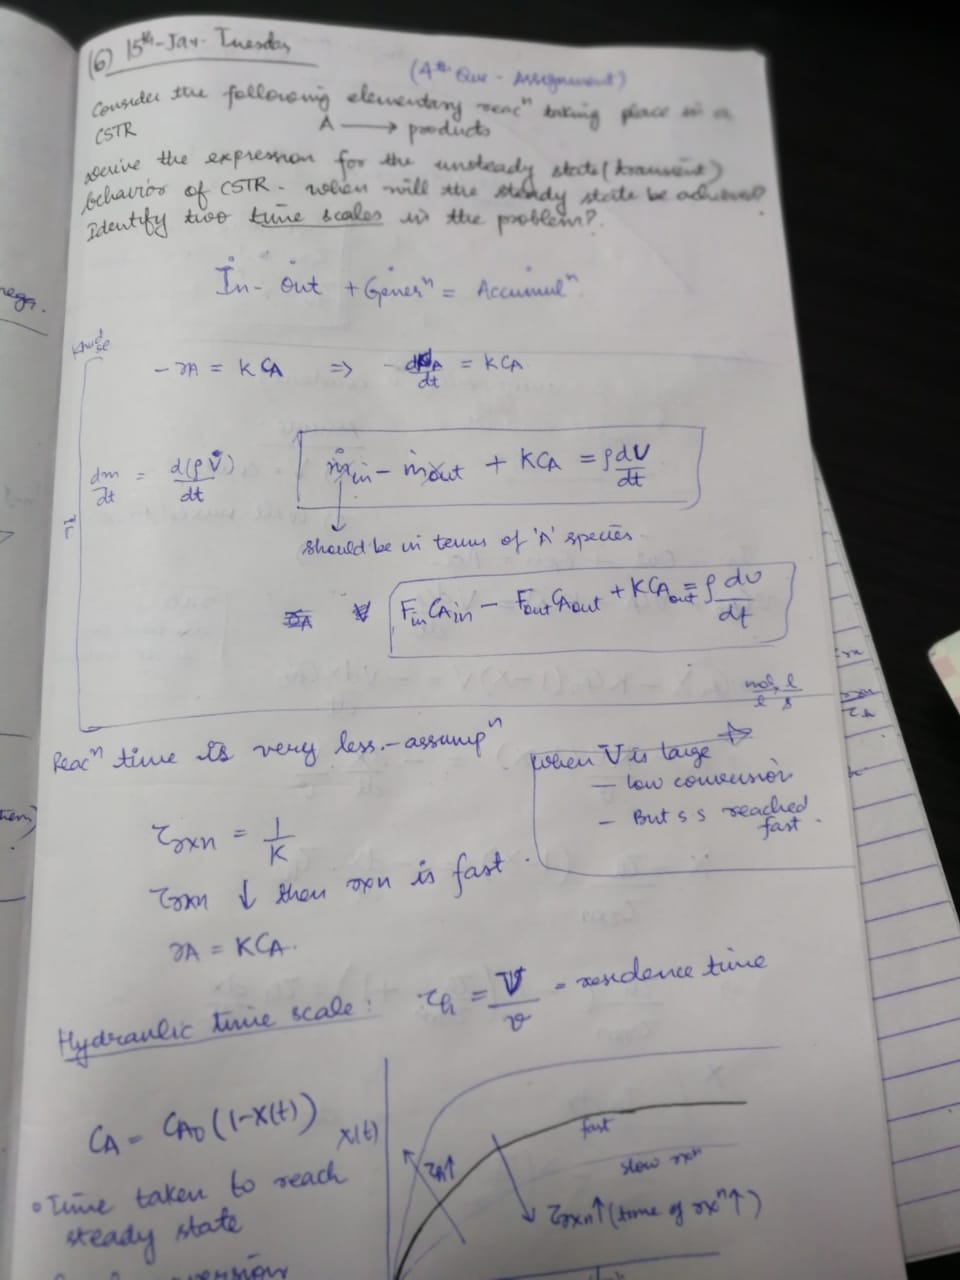 (6) 15th-Jan- Tuesday
(4th Que - Assignment)
Consider the following elementary reacn taking place in a
CSTR A → products
Derive the expression for the unsteady state (transient)
behavior of CSTR. when will the steady state be achieved?
Identify two time scales in the problem?.
In - Out + Genern = Accumuln
-rA = K CA ⇒ - = K CA
dt
dm/dt = d(ρV)/dt
ṁin - ṁout + KCA = ρ dV/dt
should be in terms of 'A' species.
Fin CAin - Fout CAout + KCAout = ρ dv/dt
mol/l l/s
Reacn time is very less. - assumpn
when V is large
- low conversion
- But s s reached
fast.
τrxn = 1/K
τrxn ↓ then rxn is fast.
rA = KCA.
Hydraulic time scale: τh = V/v = residence time
CA = CA0 (1-X(t))
X(t)
τh↑
fast
slow rxn
τrxn↑ (time of rxn↑)
• Time taken to reach
steady state